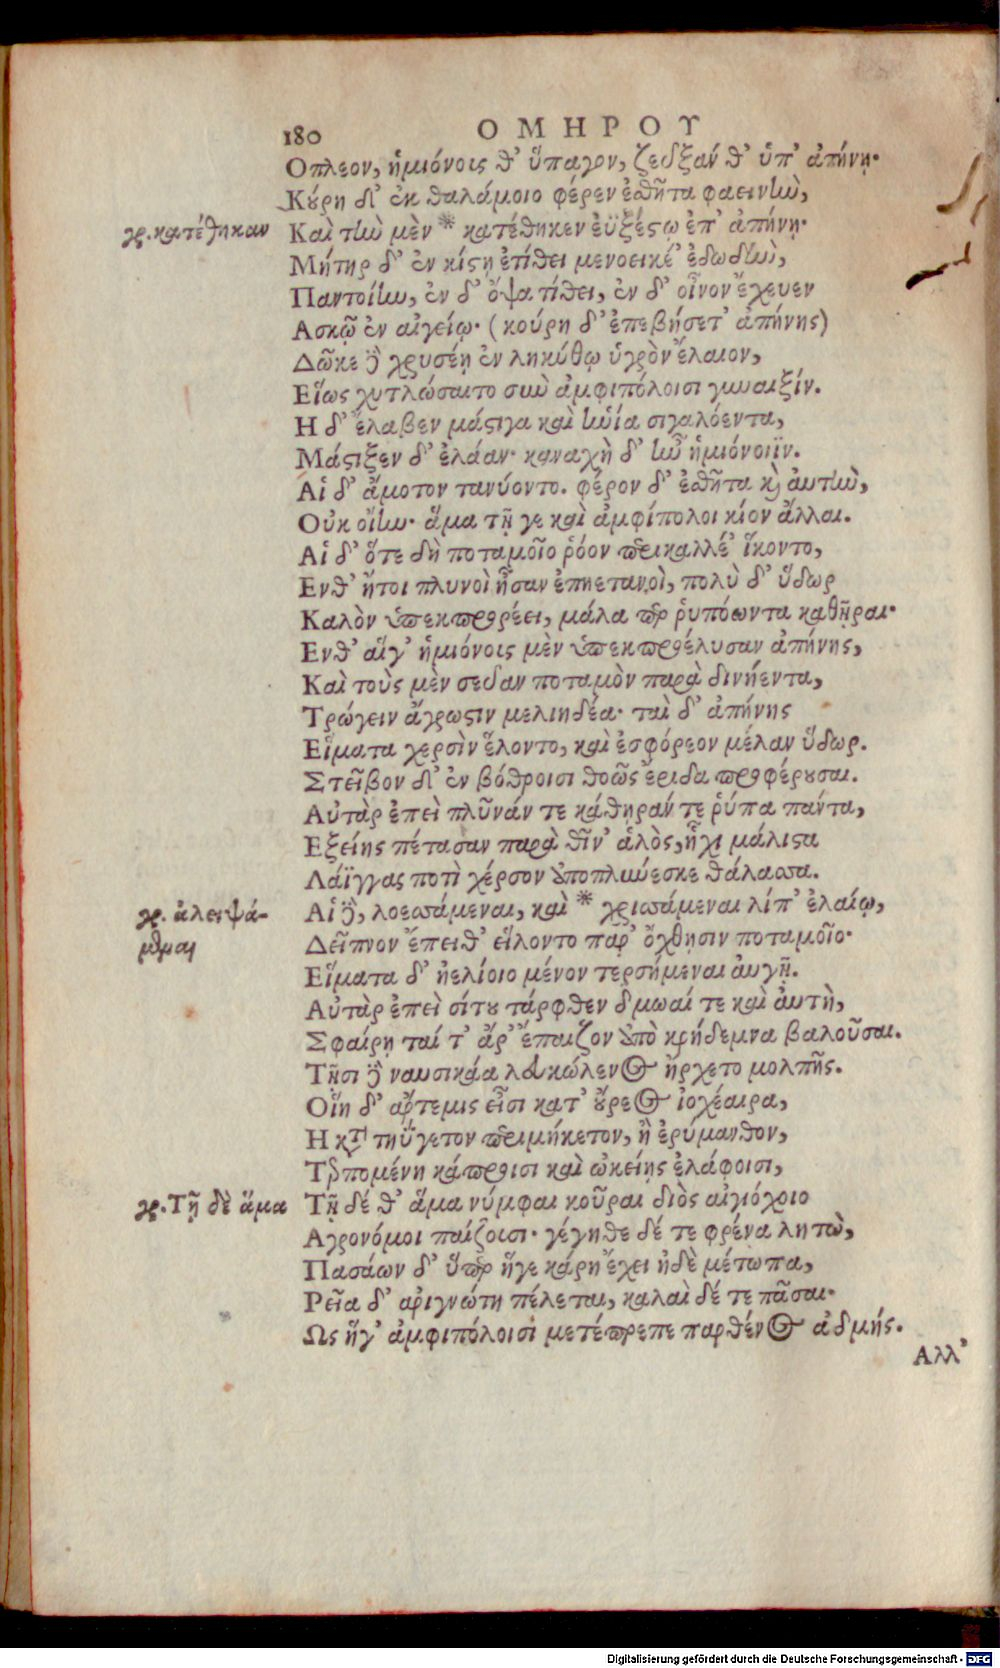 180 ΟΜΗΡΟΥ
Οπλεον, ἡμιόνοις θ' ὕπαγον, ζεῦξάν θ' ὑπ' ἀπήνῃ·
Κύρη δ' ἐκ θαλάμοιο φέρεν ἐσθῆτα φαεινὴν,
γρ. κατέθηκαν Καὶ τὴν μὲν * κατέθηκεν ἐϋξέστῳ ἐπ' ἀπήνῃ·
Μήτηρ δ' ἐν κίστῃ ἐτίθει μενοεικέ' ἐδωδὴν,
Παντοίην, ἐν δ' ὄψα τίθει, ἐν δ' οἶνον ἔχευεν
Ασκῷ ἐν αἰγείῳ· (κούρη δ' ἐπεβήσετ' ἀπήνης)
Δῶκε δὲ χρυσέῃ ἐν ληκύθῳ ὑγρὸν ἔλαιον,
Εἵως χυτλώσαιτο σὺν ἀμφιπόλοισι γυναιξίν.
Η δ' ἔλαβεν μάστιγα καὶ ἡνία σιγαλόεντα,
Μάστιξεν δ' ἐλάαν· καναχὴ δ' ἦν ἡμιόνοιϊν.
Αἱ δ' ἄμοτον τανύοντο. φέρον δ' ἐσθῆτα καὶ ἀυτὴν,
Οὐκ οἴην· ἅμα τῇ γε καὶ ἀμφίπολοι κίον ἄλλαι.
Αἱ δ' ὅτε δὴ ποταμοῖο ῥόον περικαλλέ' ἵκοντο,
Ενθ' ἤτοι πλυνοὶ ἦσαν ἐπηετανοὶ, πολὺ δ' ὕδωρ
Καλὸν ὑπεκπρορέει, μάλα περ ῥυπόωντα καθῆραι·
Ενθ' αἵγ' ἡμιόνοις μὲν ὑπεκπροέλυσαν ἀπήνης,
Καὶ τοὺς μὲν σεῦαν ποταμὸν παρὰ δινήεντα,
Τρώγειν ἄγρωστιν μελιηδέα· ταὶ δ' ἀπήνης
Εἵματα χερσὶν ἕλοντο, καὶ ἐσφόρεον μέλαν ὕδωρ.
Στεῖβον δ' ἐν βόθροισι θοῶς ἔριδα προφέρουσαι.
Αὐτὰρ ἐπεὶ πλῦνάν τε κάθηράν τε ῥύπα πάντα,
Εξείης πέτασαν παρὰ θῖν' ἁλὸς, ἧχι μάλιστα
Λάϊγγας ποτὶ χέρσον ἀποπλύνεσκε θάλασσα.
γρ. ἀλειψά- Αἱ δὲ, λοεσσάμεναι, καὶ * χρισσάμεναι λίπ' ἐλαίῳ,
μεναι Δεῖπνον ἔπειθ' εἵλοντο παρ' ὄχθῃσιν ποταμοῖο·
Εἵματα δ' ἠελίοιο μένον τερσήμεναι ἀυγῇ.
Αὐτὰρ ἐπεὶ σίτου τάρφθεν δμωαί τε καὶ ἀυτὴ,
Σφαίρῃ ταί τ' ἄρ' ἔπαιζον ἀπὸ κρήδεμνα βαλοῦσαι.
Τῇσι δὲ ναυσικάα λευκώλενος ἤρχετο μολπῆς.
Οἵη δ' ἄρτεμις εἶσι κατ' οὔρεος ἰοχέαιρα,
Η κατὰ τηΰγετον περιμήκετον, ἢ ἐρύμανθον,
Τερπομένη κάπροισι καὶ ὠκείῃς ἐλάφοισι,
γρ. Τῇ δὲ ἅμα Τῇ δέ θ' ἅμα νύμφαι κοῦραι διὸς αἰγιόχοιο
Αγρονόμοι παίζουσι· γέγηθε δέ τε φρένα λητὼ,
Πασάων δ' ὕπερ ἥγε κάρη ἔχει ἠδὲ μέτωπα,
Ρεῖα δ' ἀριγνώτη πέλεται, καλαὶ δέ τε πᾶσαι·
Ως ἥγ' ἀμφιπόλοισι μετέπρεπε παρθένος ἀδμής.
Αλλ'
Digitalisierung gefördert durch die Deutsche Forschungsgemeinschaft - DFG